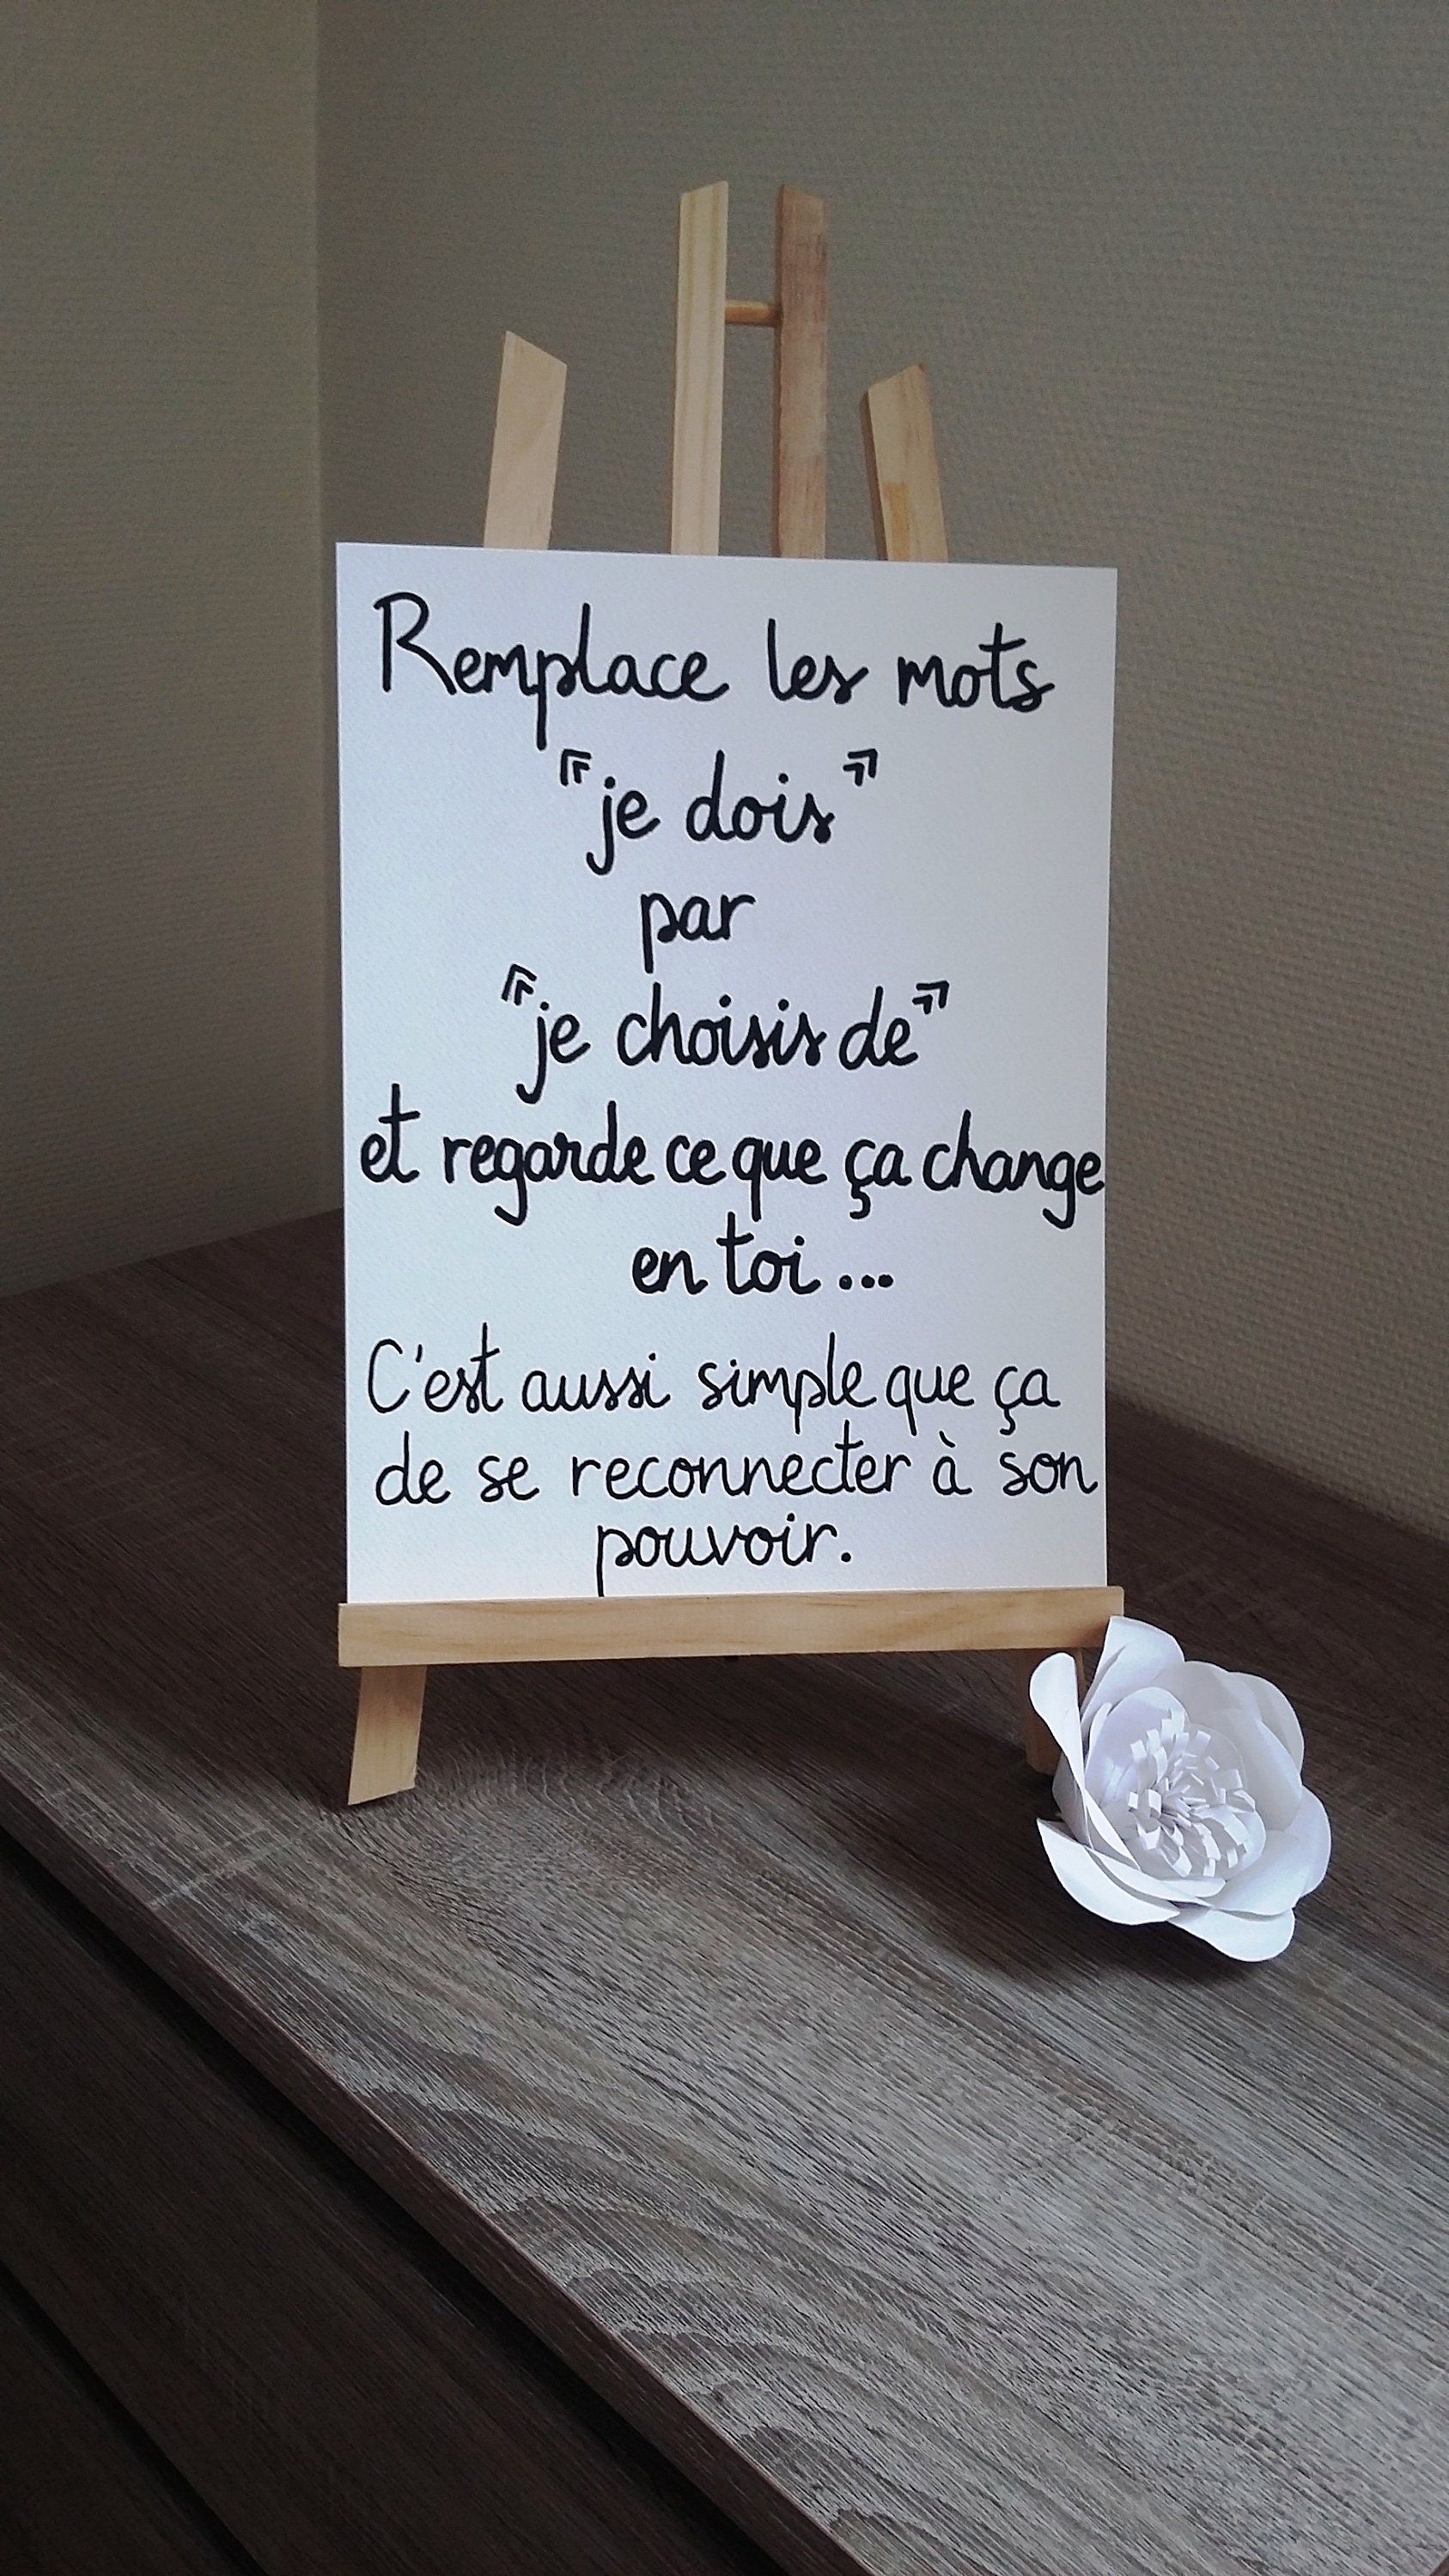 Remplace les mots
"je dois"
par
"je choisis de"
et regarde ce que ça change
en toi...
C'est aussi simple que ça
de se reconnecter à son
pouvoir.